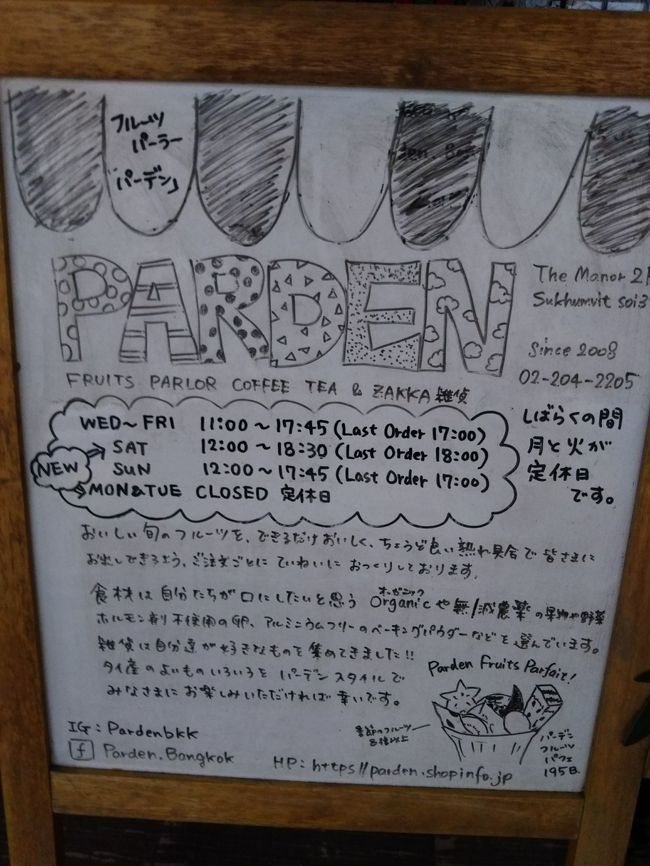 フルーツ
パーラー
「パーデン」
PARDEN
The Manor 2
Sukhumvit soi3
Since 2008
02-204-2205
FRUITS PARLOR COFFEE TEA & ZAKKA 雑貨
WED～FRI 11:00～17:45 (Last Order 17:00)
NEW
SAT 12:00～18:30 (Last Order 18:00)
SUN 12:00～17:45 (Last Order 17:00)
MON&TUE CLOSED 定休日
しばらくの間
月と火が
定休日
です。
おいしい旬のフルーツを、できるだけおいしく、ちょうど良い熟れ具合で皆さまに
お出しできるよう、ご注文ごとにていねいにおつくりしております。
食材は自分たちが口にしたいと思うOrganicや無/減農薬の果物や野菜
オーガニック
ホルモン剤不使用の卵、アルミニウムフリーのベーキングパウダーなどを選んでいます。
雑貨は自分達が好きなものを集めてきました!!
タイ産のよいものいろいろをパーデンスタイルで
みなさまにお楽しみいただければ幸いです。
Parden Fruits Parfait!
季節のフルーツ
8種以上
パーデン
フルーツ
パフェ
195B.
IG: Pardenbkk
f Parden.Bangkok
HP: https//parden.shopinfo.jp